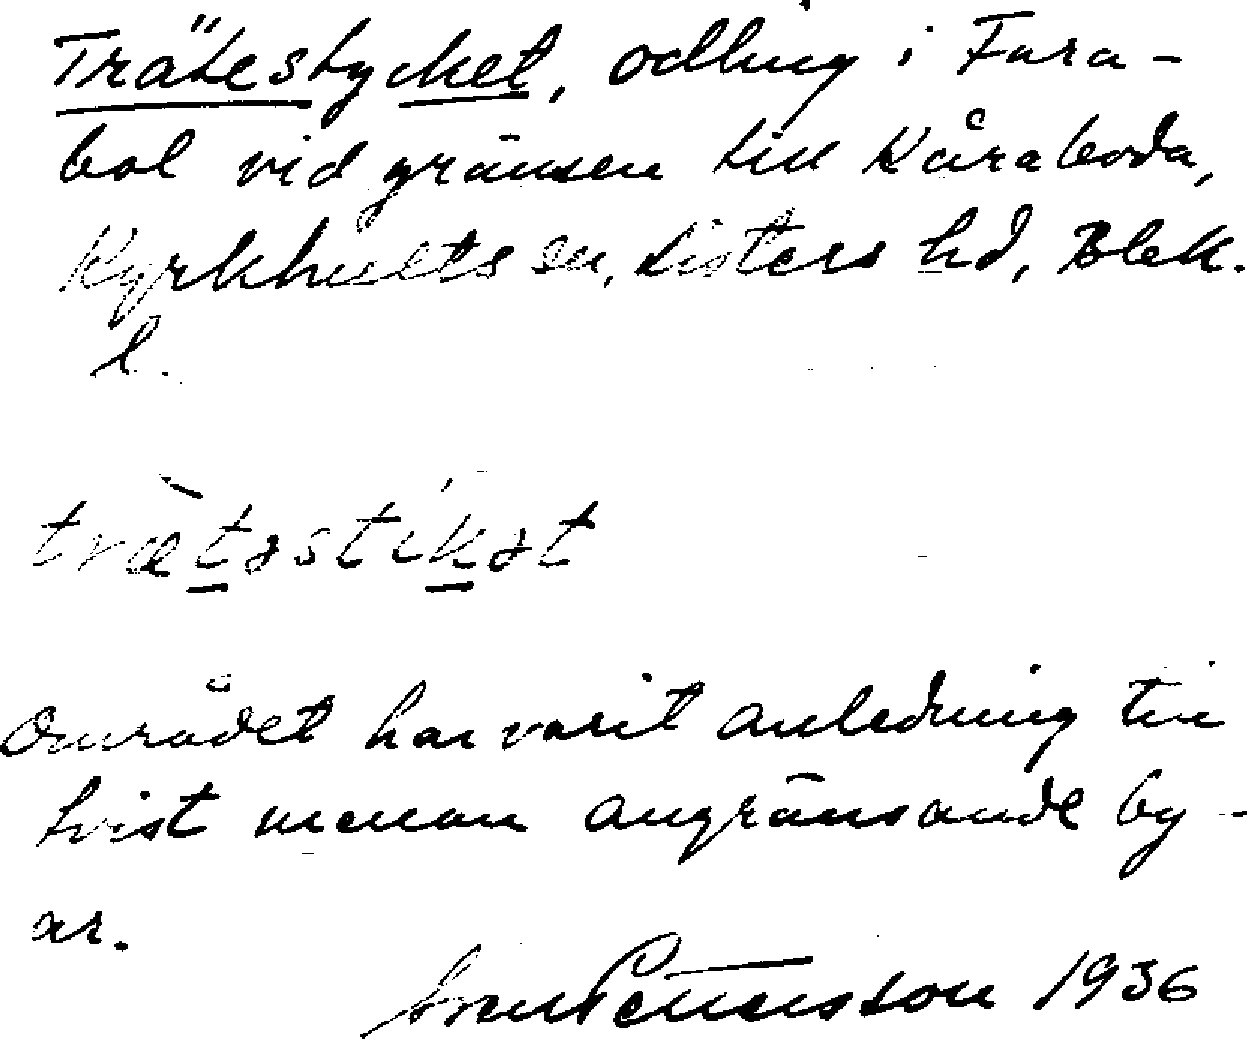 Trätestycket, odling i Fara-
bol vid gränsen till Kåraboda,
Kyrkhults sn, Listers hd, Blek.
l.
trætəstikət
Området har varit anledning till
tvist mellan angränsande by-
ar.
Sven Pettersson 1936